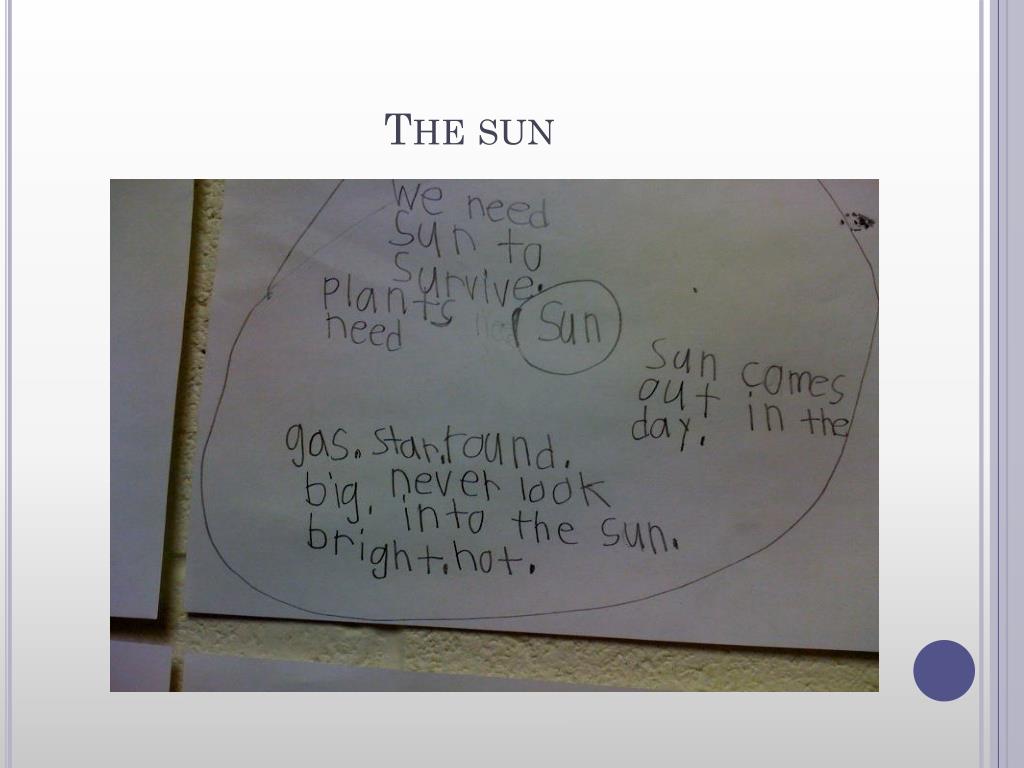 THE SUN
we need
sun to
survive.
plants
need
Sun
sun comes
out in the
day.
gas. star. round.
big. never look
into the sun.
bright. hot.